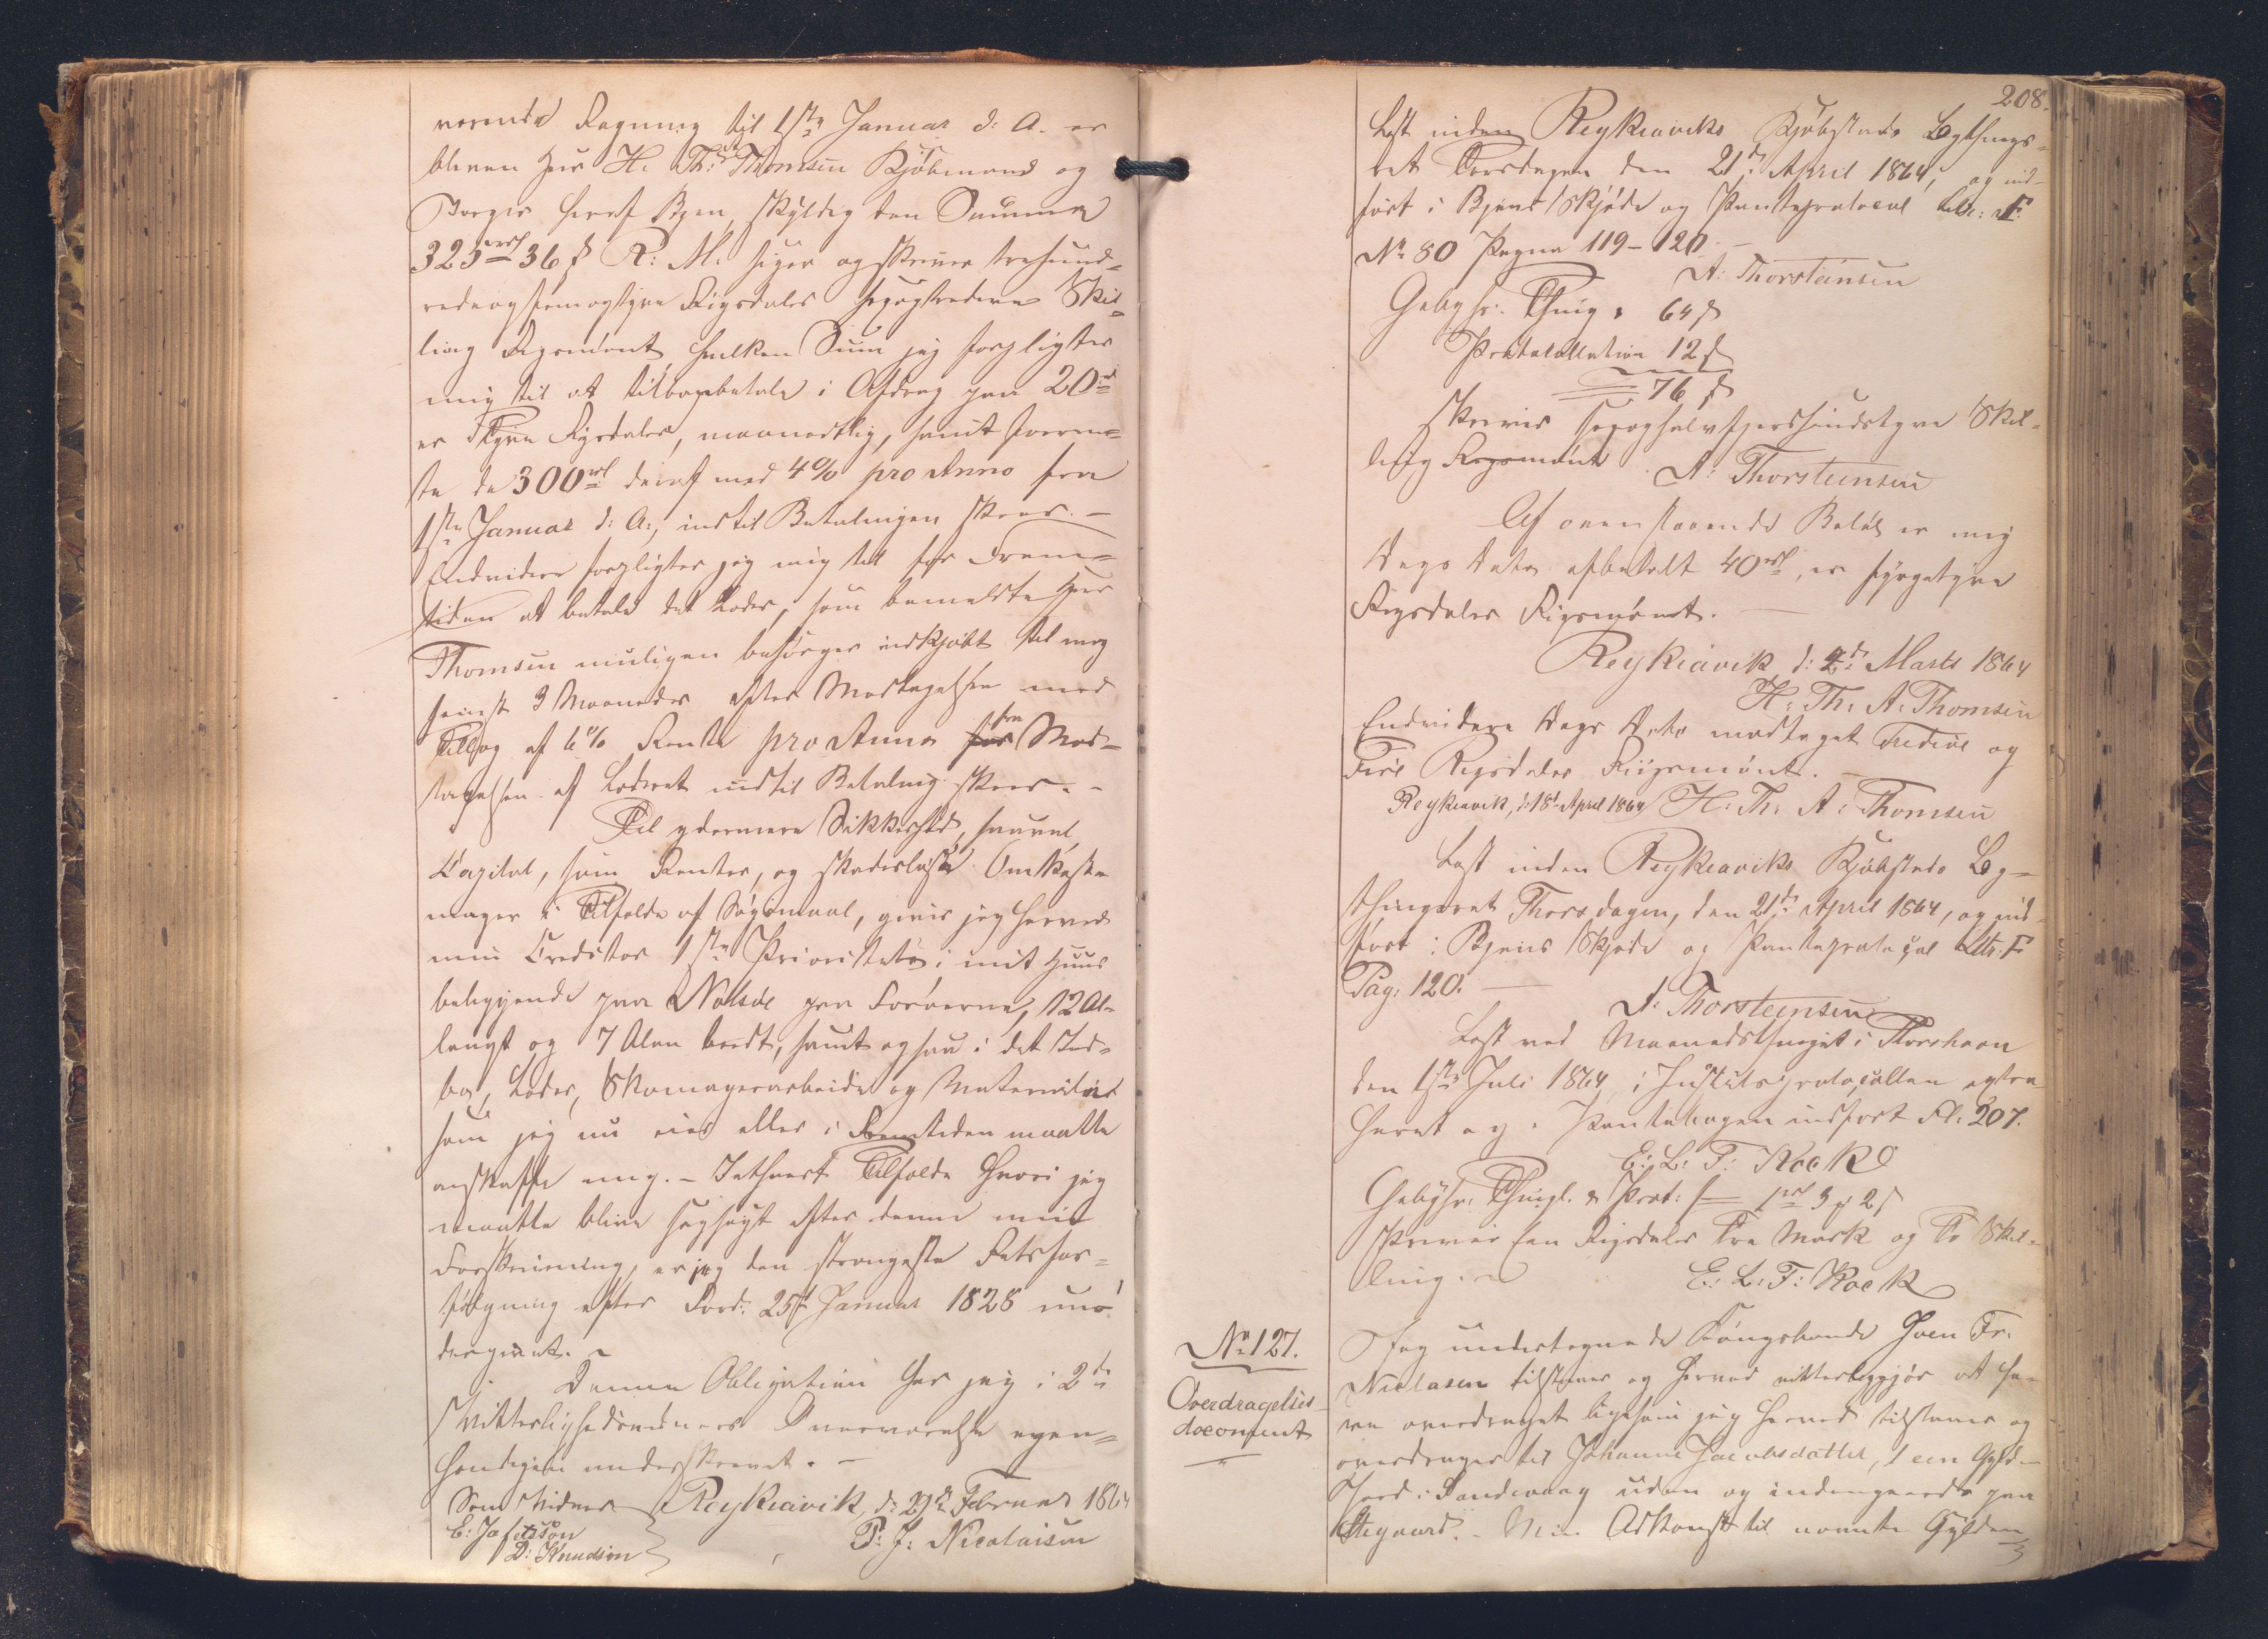 værende Regning til 1ste Januar d: A. er
bleven Herr H. Th: A. Thomsen Kjøbmand og
Borger heraf Byen, skyldig den Summa
325 rd 36 s R: M. siger og skriver trehund-
redeogfemogtyve Rigsdaler sexogtredeve Skil-
ling Rigsmønt hvilken Sum jeg forpligter
mig til at tilbagebetale i Afdrag paa 20 rd
er Tyve Rigsdaler, maanedtlig, samt forren-
te de 300 rd deraf med 4% pro Anno fra
1ste Januar d: A:, indtil Betalingen skeer. -
Endvidere forpligter jeg mig til for Frem-
tiden at betale det Læder, som bemeldte Herr
Thomsen muligen besørger indkjøbt til mig
seinst 3 Maaneder efter Modtagelsen med
Tillæg af 6% Rente pro Anno fra Mod-
tagelsen af Læderet indtil Betaling skeer. -
Til ydermere Sikkerhed, saavel
Capital, som Renter, og skadesløse Omkost-
inger i Tilfælde af Søgsmaal, giver jeg herved
min Creditor 1ste Prioritet i mit Huus
beliggende paa Nolsøe paa Færøerne, 12 Al-
langt og 7 Alen bredt, samt ogsaa i det Ind-
bo, Læder, Skomagerarbeide og Materialier
som jeg nu eier eller i Fremtiden maatte
anskaffe mig. - I ethvert Tilfælde hvori jeg
maatte blive sagsøgt efter denne min
Forskrivning, er jeg den strængeste Retsfor-
følgning efter Ford: 25de Januar 1828 un-
dergivet. -
Denne Obligation har jeg i 2de
Vitterlighedsvidners Overværelse egen-
hændigen underskrevet. -
Som Vidner Reykiavik, d: 29de Februar 1864
E: Jafetsson
D: Knudsen P: J: Nicolaisen
208.
Læst inden Reykiaviks Kjøbstads Bythings-
ret Torsdagen den 21de April 1864, og ind-
ført i Byens Skjøde og Panteprotocol Litr: F.
No 80 Pagina 119-120. -
A: Thorsteinsen
Gebyhr: Thing: 64 s
Protocollation 12 s
76 s
skriver sexoghalvfjerdsindstyve Skil-
ling Rigsmønt. A: Thorsteinsen
Af ovenstaaende Beløb er mig
Dags Dato afbetalt 40 rd, er fyrgetyve
Rigsdaler Rigsmønt. -
Reykiavik d: 2de Marts 1864
H: Th: A: Thomsen
Endvidere Dags Dato modtaget Tredive og
Fire Rigsdaler Rigsmønt. -
Reykiavik, d: 18de April 1864 H: Th: A: Thomsen
Læst inden Reykiaviks Kjøbstads By-
thingsret Thorsdagen, den 21de April 1864, og ind-
ført i Byens Skjøde og Panteprotocol Litr: F
Pag: 120. -
A: Thorsteinsen
Læst ved Maanedsthinget i Thorshavn
den 1ste Juli 1864, i Justitsprotocollen extra-
heret og i Pantebogen indført Fl: 207.
E: L: F: Kock
Gebyhr: Thingl. & Prot: 1 rd 3 m 2 s
skriver Een Rigsdaler Tre Mark og To Skil-
ling. E: L: F: Kock
No 127.
Overdragelses-
document
Jeg undertegnede Kongsbonde Sven Fr.
Niclasen tilstaaer og herved vitterliggjør at ha-
ve overdraget ligesom jeg herved tilstaaer og
overdrager til Johanne Jacobsdatter, 1 een Gyld-
Jord i Sandevaag uden og indengaards paa
. - Min Adkomst til nævnte Gylden